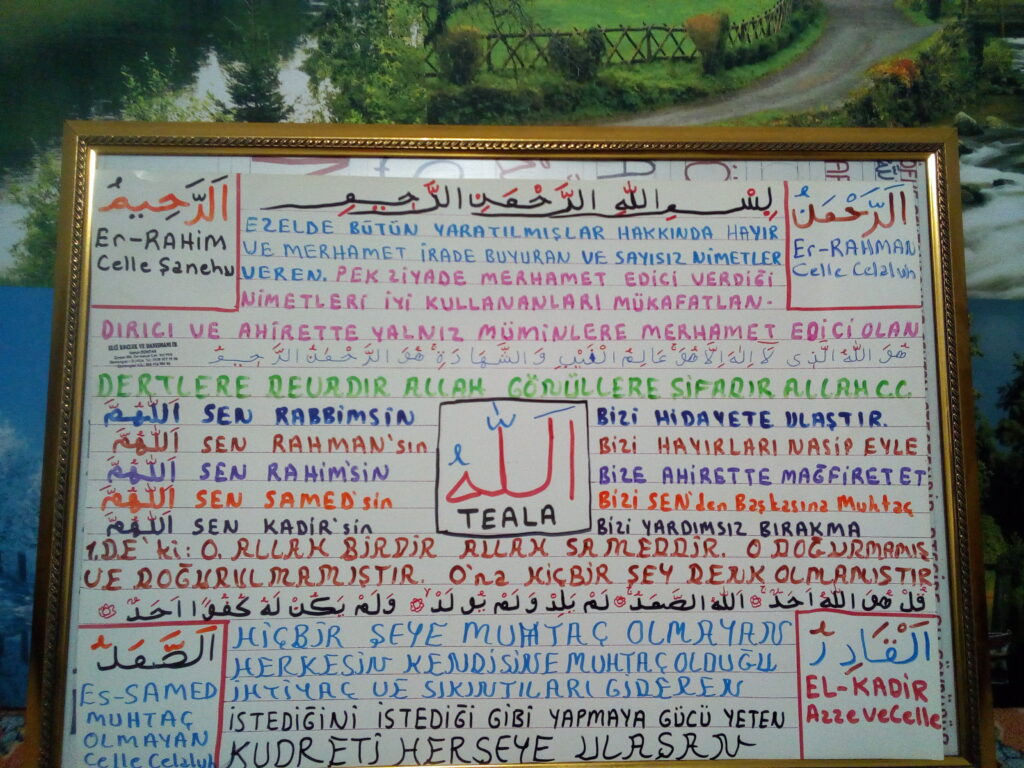 اَلرَّحِيمُ
Er-RAHİM
Celle Şanehu
بِسْمِ اللهِ الرَّحْمٰنِ الرَّحِيمِ
EZELDE BÜTÜN YARATILMIŞLAR HAKKINDA HAYIR
VE MERHAMET İRADE BUYURAN VE SAYISIZ NİMETLER
VEREN. PEK ZİYADE MERHAMET EDİCİ VERDİĞİ
NİMETLERİ İYİ KULLANANLARI MÜKAFATLAN-
اَلرَّحْمٰنُ
Er-RAHMAN
Celle Celaluh
DIRICI VE AHİRETTE YALNIZ MÜMİNLERE MERHAMET EDİCİ OLAN
هُوَ اللهُ الَّذِى لَا اِلٰهَ اِلَّا هُوَ عَالِمُ الْغَيْبِ وَالشَّهَادَةِ هُوَ الرَّحْمٰنُ الرَّحِيمُ
DERTLERE DEVADIR ALLAH GÖNÜLLERE ŞİFADIR ALLAH C.C.
اَللّٰهُمَّ SEN RABBİMSİN BİZİ HİDAYETE ULAŞTIR.
اَللّٰهُمَّ SEN RAHMAN'sın BİZİ HAYIRLARI NASİP EYLE
اَللّٰهُمَّ SEN RAHİM'SİN BİZE AHİRETTE MAĞFİRET ET
اَللّٰهُمَّ SEN SAMED'sin BİZİ SEN'den Başkasına Muhtaç
اَللّٰهُمَّ SEN KADİR'sin BİZİ YARDIMSIZ BIRAKMA
اَللّٰهُ
TEALA
1.DE'ki: O. ALLAH BİRDİR ALLAH SAMEDDİR. O DOĞURMAMIŞ
VE DOĞURULMAMIŞTIR. O'na HİÇBİR ŞEY DENK OLMAMIŞTIR
قُلْ هُوَ اللهُ اَحَدٌ اَللهُ الصَّمَدُ لَمْ يَلِدْ وَلَمْ يُولَدْ وَلَمْ يَكُنْ لَهُ كُفُوًا اَحَدٌ
اَلصَّمَدُ
Es-SAMED
MUHTAÇ
OLMAYAN
Celle Celaluh
HİÇBİR ŞEYE MUHTAÇ OLMAYAN
HERKESİN KENDİSİNE MUHTAÇ OLDUĞU
İHTİYAÇ VE SIKINTILARI GİDEREN
İSTEDİĞİNİ İSTEDİĞİ GİBİ YAPMAYA GÜCÜ YETEN
KUDRETİ HERŞEYE ULAŞAN
اَلْقَادِرُ
EL-KADİR
Azze VeCelle